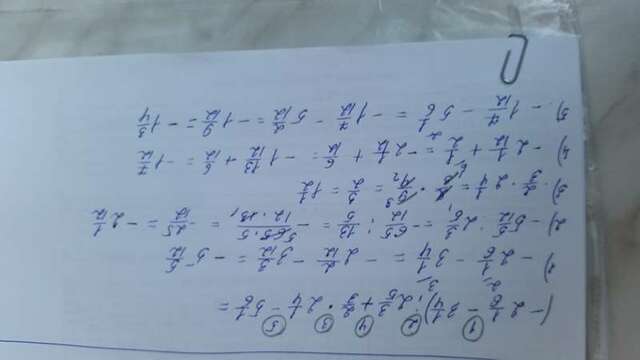 (-2 1/6 - 3 1/4) : 2 3/5 + 2/3 · 2 1/4 - 5 1/6 =
1) -2 1/6 - 3 1/4 = -2 2/12 - 3 3/12 = -5 5/12
2) -5 5/12 : 2 3/5 = -65/12 : 13/5 = - 65·5/12·13 = - 25/12 = -2 1/12
3) 2/3 · 2 1/4 = 2/3 · 9/4 = 3/2 = 1 1/2
4) -2 1/12 + 1/2 = -2 1/12 + 6/12 = -1 13/12 + 6/12 = -1 7/12
5) -1 7/12 - 5 1/6 = -1 7/12 - 5 2/12 = -1 9/12 = -1 3/4